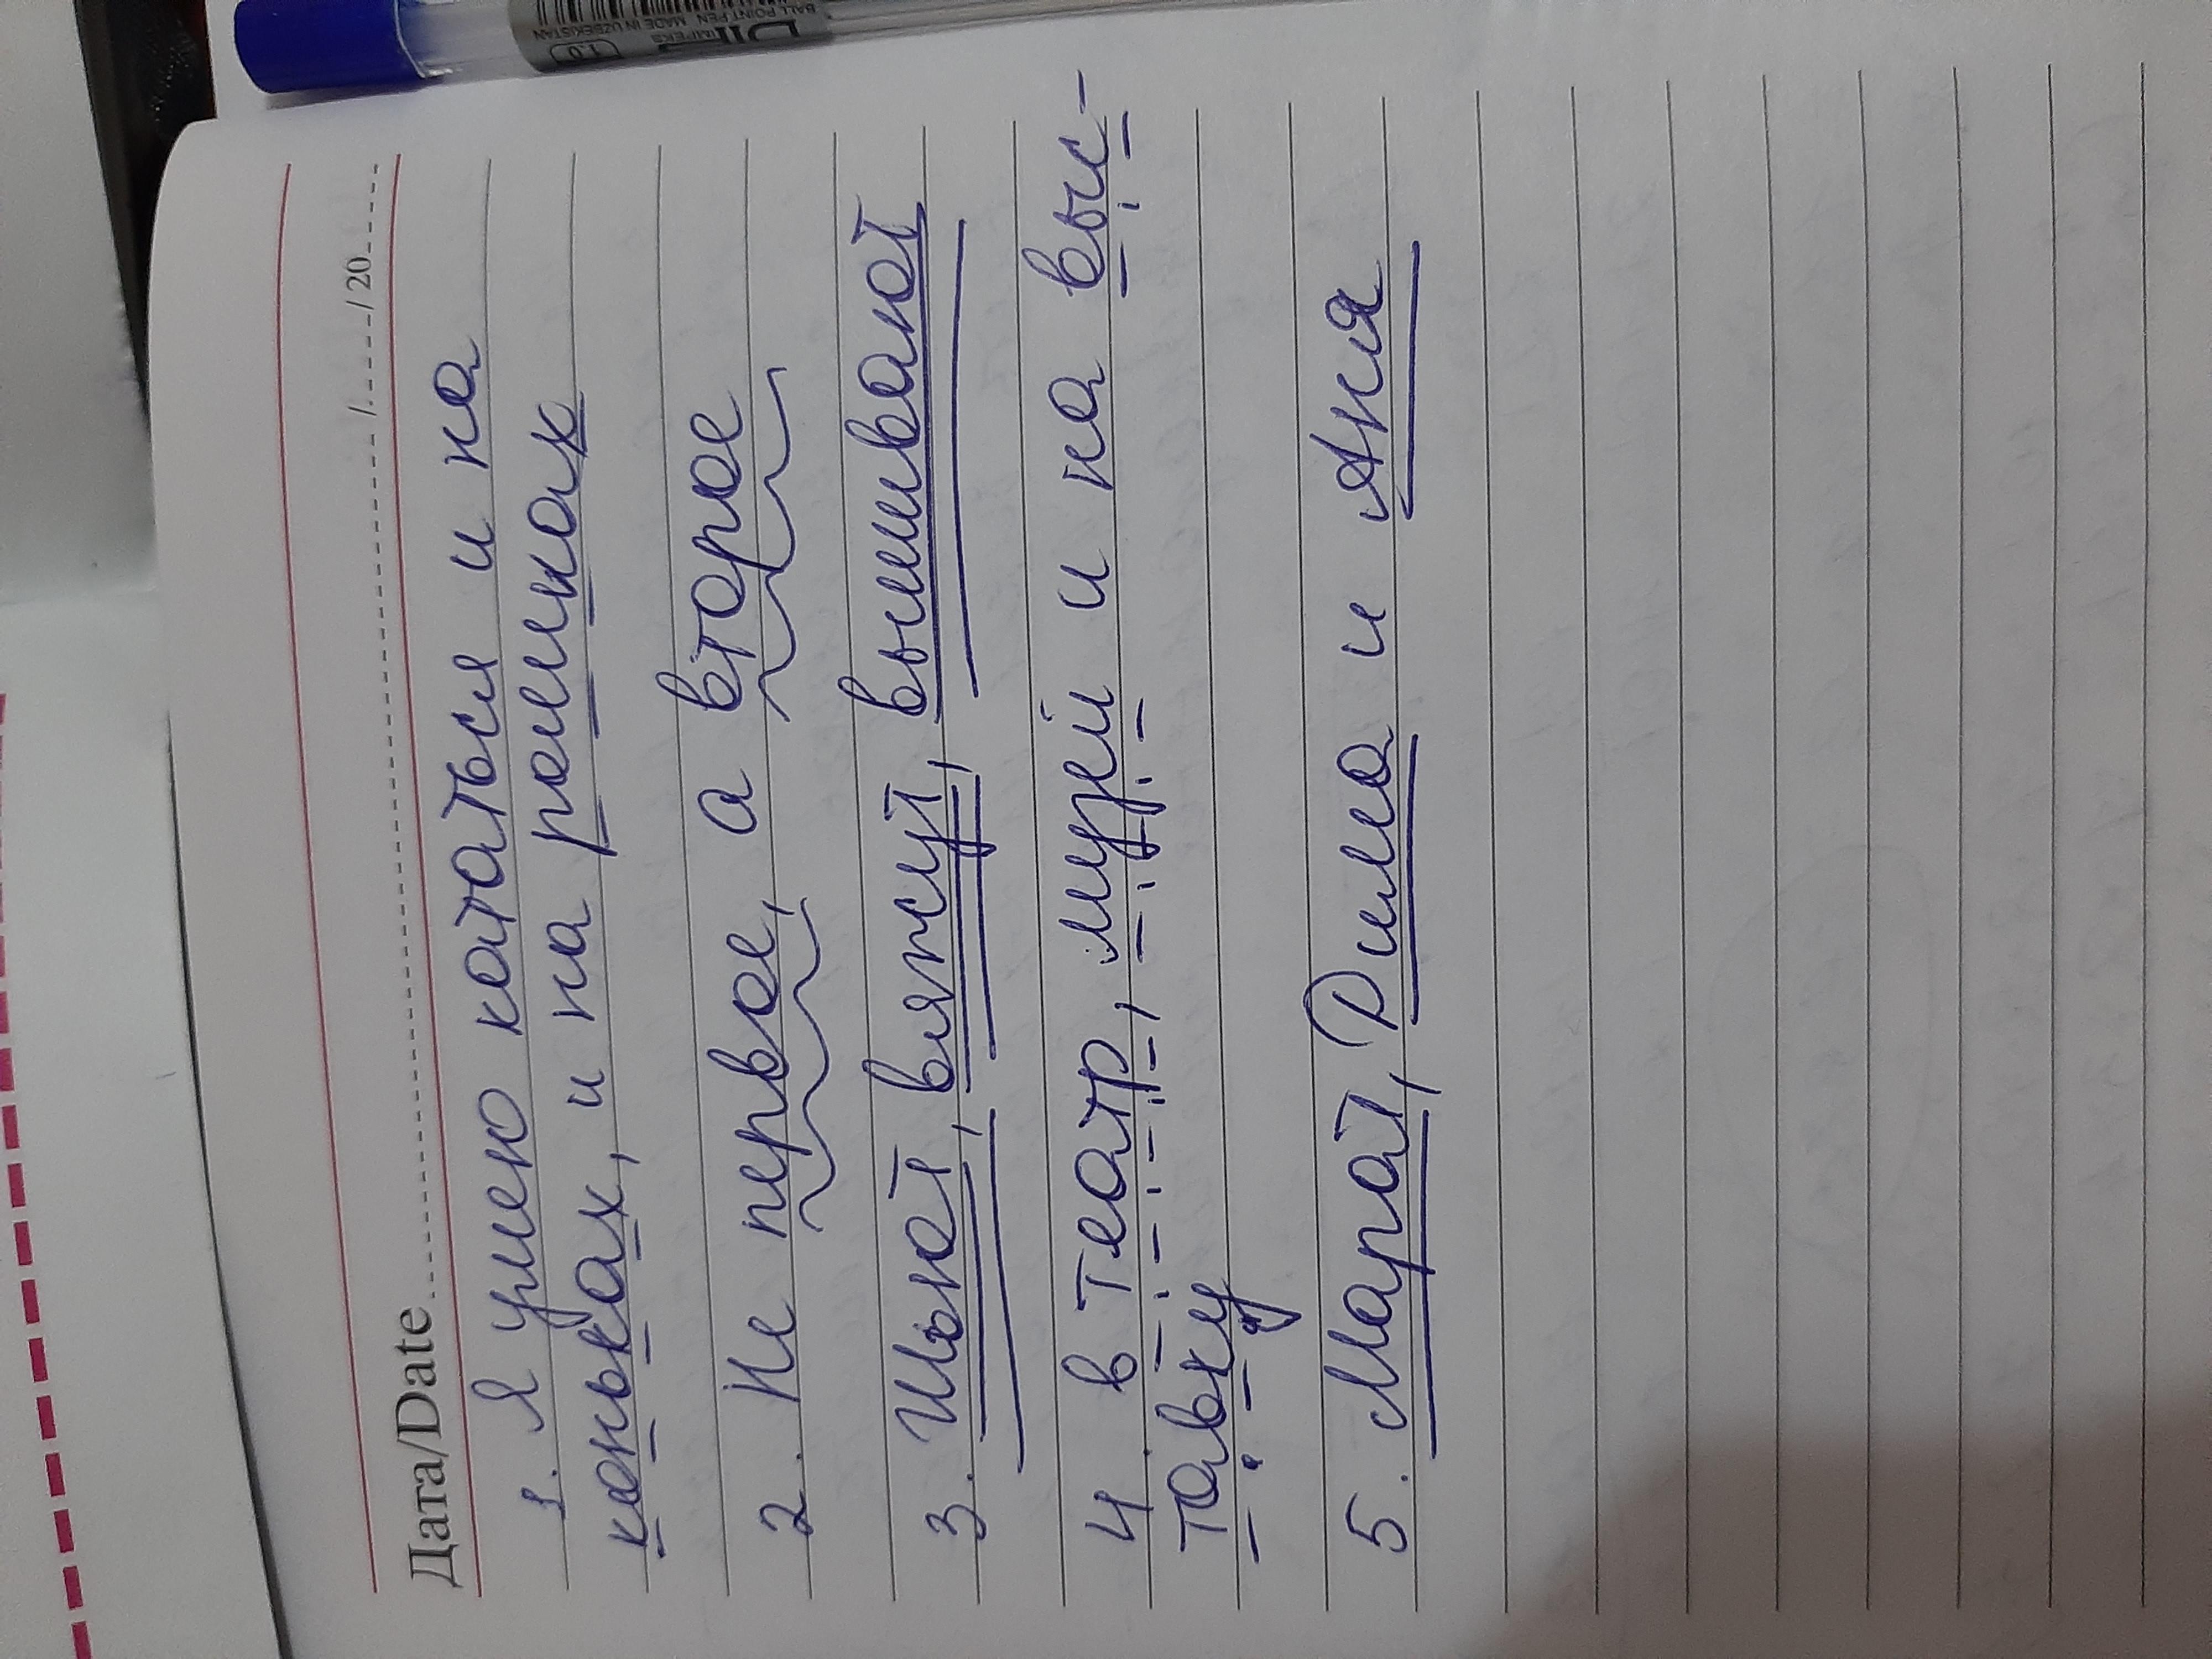 BALL POINT PEN MADE IN UZBEKISTAN
IMPEKS
1.0
Дата/Date / / 20
1. Я умею кататься и на
коньках, и на роликах
2. Не первое, а второе
3. Шьют, вяжут, вышивают
4. в театр, музей и на выс-
тавку
5. Марат, Рима и Аня